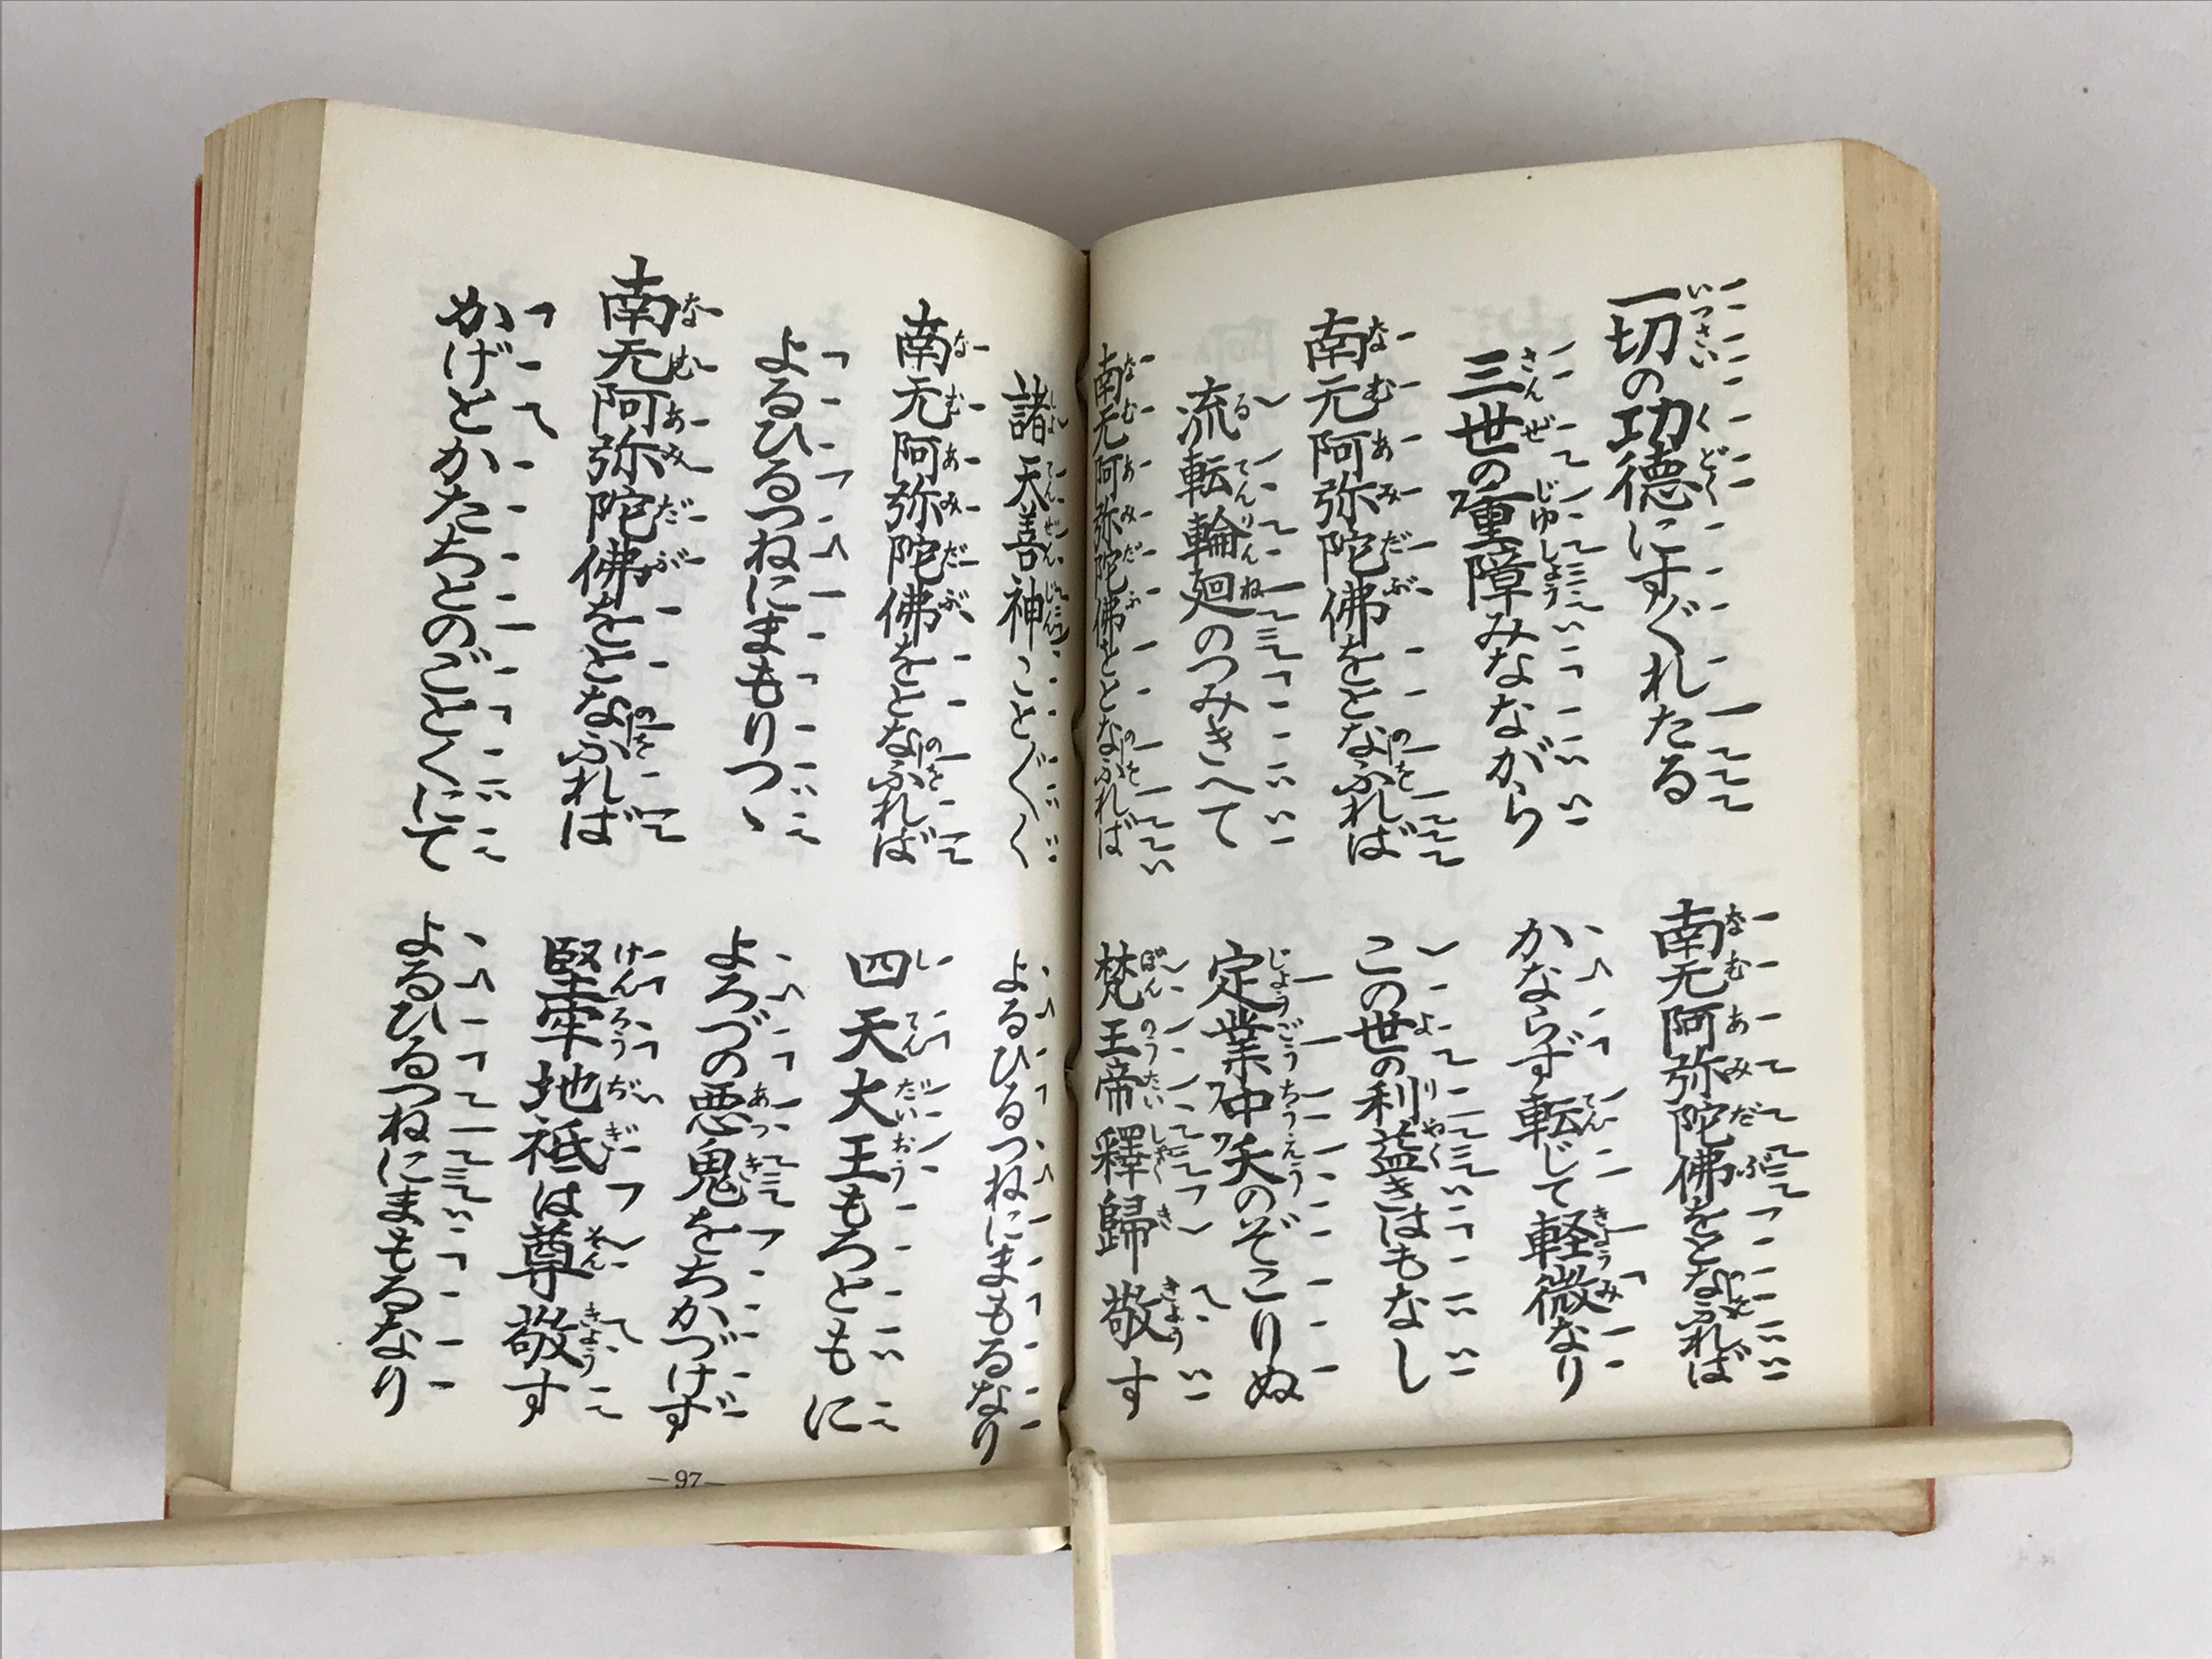 一切の功徳にすぐれたる
南无阿弥陀佛をとなふれば
三世の重障みなながら
かならず転じて軽微なり
南无阿弥陀佛をとなふれば
この世の利益きはもなし
流転輪廻のつみきへて
定業中夭のぞこりぬ
南无阿弥陀佛をとなふれば
梵王帝釋歸敬す
諸天善神こと〴〵く
よるひるつねにまもるなり
南无阿弥陀佛をとなふれば
四天大王もろともに
よるひるつねにまもりつヽ
よろづの悪鬼をちかづけず
南无阿弥陀佛をとなふれば
堅牢地祇は尊敬す
かげとかたちとのごとくにて
よるひるつねにまもるなり
—97—